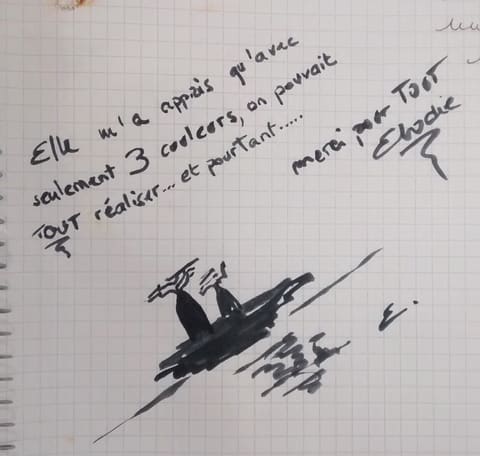 Elle m'a appris qu'avec
seulement 3 couleurs, on pouvait
TOUT réaliser... et pourtant.....
merci pour TOUT
Elodie
E.